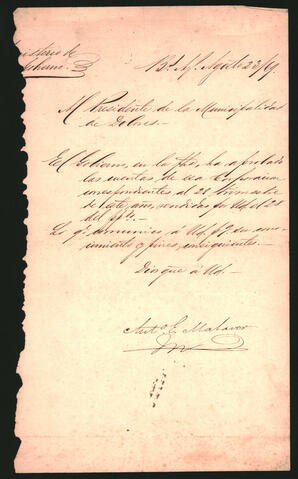 nisterio de
obierno.
Bs. As. Agosto 23/69.
Al Presidente de la Municipalidad
de Dolores.
El Gobierno, en la fha, ha aprobado
las cuentas de esa Corporacion
correspondientes al 2º trimestre
de este año, rendidas por Ud. el 28
del
Lo q. comunico á Ud. pª su cono-
cimiento y fines consiguientes.
Dios gue á Ud.
Anto. E. Malaver